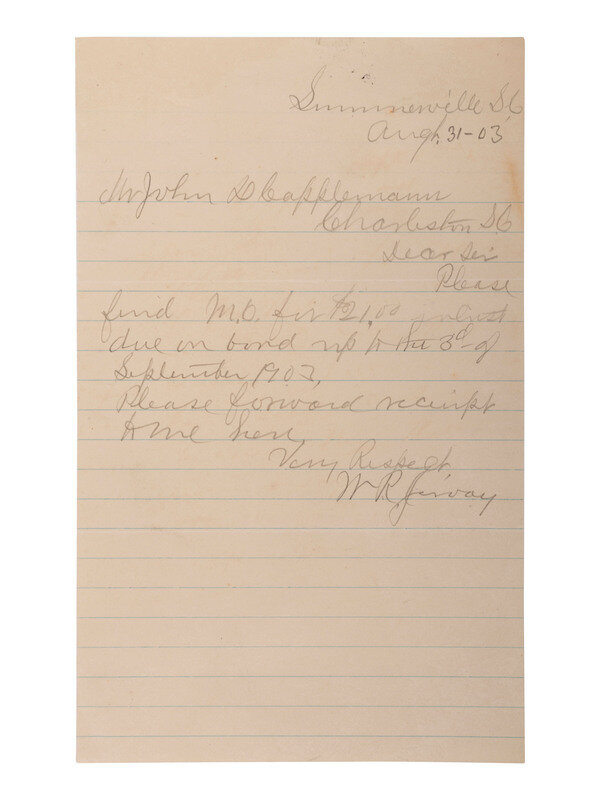 Summerville S.C
Augt. 31-03
Mr John D Cappelmann
Charleston S.C
Dear Sir
Please
find M.O. for $21.00 interest
due on bond up to the 3d of
September 1903,
Please forward receipt
to me here,
Very Respect
W R Jervay